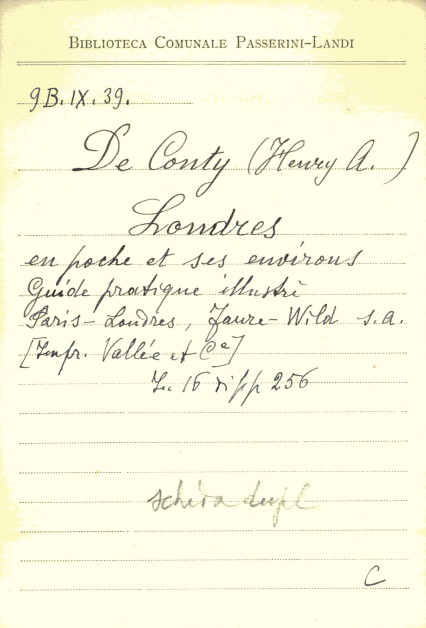 BIBLIOTECA COMUNALE PASSERINI-LANDI
9B.IX.39.
De Conty (Henry A.)
Londres
en poche et ses environs
Guide pratique illustrè
Paris-Londres, Faure-Wild s.a.
[Impr. Vallée et Cᵉ]
In 16 di pp 256
scheda dupl
C